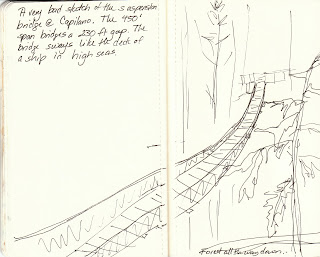 A very bad sketch of the suspension
bridge @ Capilano. The 450'
span bridges a 230 ft gap. The
bridge sways like the deck of
a ship in high seas.
Forest all the way down..